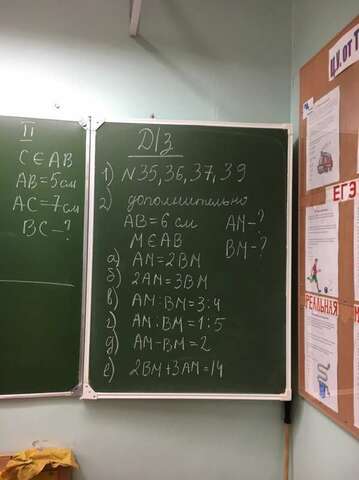 II
C ∈ AB
AB = 5 см
AC = 7 см
BC - ?
Д/З
1) N 35, 36, 37, 39
2) дополнительно
AB = 6 см AM - ?
M ∈ AB BM - ?
а) AM = 2BM
б) 2AM = 3BM
в) AM : BM = 3 : 4
г) AM : BM = 1 : 5
д) AM - BM = 2
е) 2BM + 3AM = 14
ЕГЭ